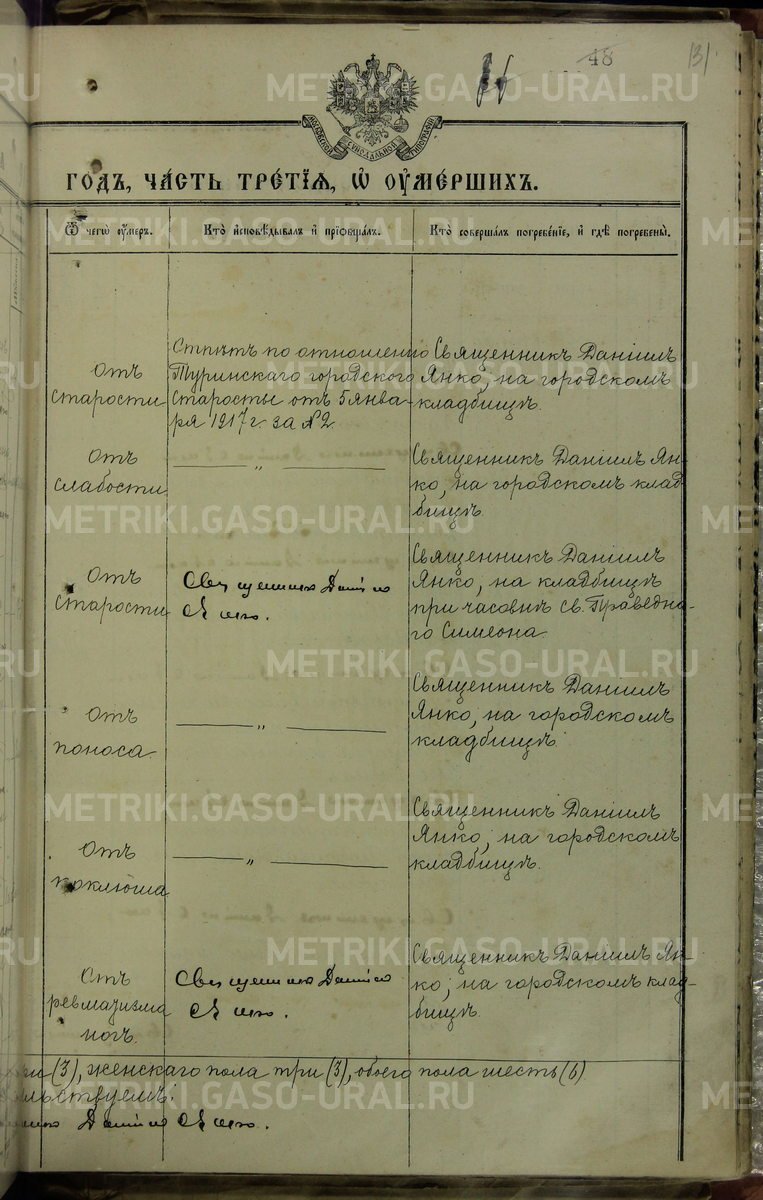 48
131
МОСКОВСКОЙ СѴНОДАЛЬНОЙ ТИПОГРАФІИ
METRIKI.GASO-URAL.RU
ГОДЪ, ЧА́СТЬ ТРЕ́ТІѦ, Ѡ҆ ОУ҆МЕ́РШИХЪ.
Ѿ чегѡ̀ оу҆́меръ.
Кто̀ и҆сповѣ́дывалъ и҆ прїѡбща́лъ.
Кто̀ соверша́лъ погребе́нїе, и҆ гдѣ̀ погребены̀.
Отъ
старости
Отпѣтъ по отношенію
Туринскаго городского
старосты отъ 5 янва-
ря 1917 г. за №2
Священникъ Даніилъ
Янко, на городскомъ
кладбищѣ.
Отъ
слабости
— „ —
Священникъ Даніилъ Ян-
ко, на городскомъ клад
бищѣ
Отъ
старости
Священникъ Даніилъ
Янко.
Священникъ Даніилъ
Янко, на кладбищѣ
при часовнѣ св. Праведна-
го Симеона
Отъ
поноса.
— „ —
Священникъ Даніилъ
Янко, на городскомъ
кладбищѣ
Отъ
коклюша
— „ —
Священникъ Даніилъ
Янко, на городскомъ
кладбищѣ.
Отъ
ревматизма
ногъ.
Священникъ Даніилъ
Янко.
Священникъ Даніилъ Ян-
ко, на городскомъ клад-
бищѣ.
(3), женскаго пола три (3), обоего пола шесть (6)
Даніилъ Янко.
METRIKI.GASO-URAL.RU